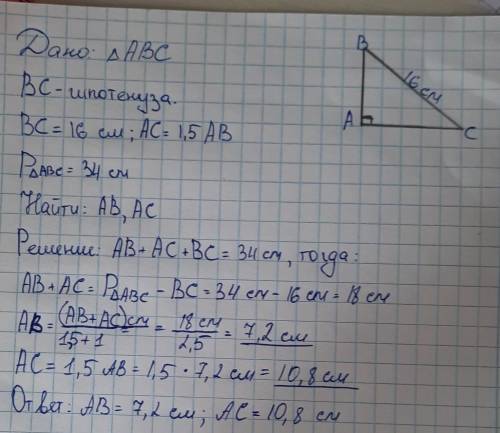 Дано: △ABC
BC - гипотенуза.
BC = 16 см; AC = 1,5 AB
P△ABC = 34 см
Найти: AB, AC
Решение: AB + AC + BC = 34 см, тогда:
AB + AC = P△ABC - BC = 34 см - 16 см = 18 см
AB = (AB + AC) см / 1,5 + 1 = 18 см / 2,5 = 7,2 см
AC = 1,5 AB = 1,5 · 7,2 см = 10,8 см
Ответ: AB = 7,2 см; AC = 10,8 см
B
16 см
A
C